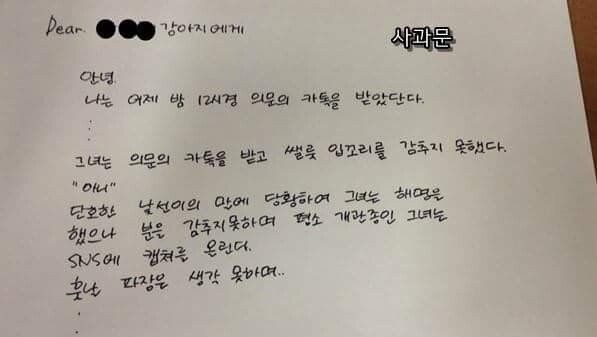 Dear. ●●● 강아지에게
사과문
안녕.
나는 어제 밤 12시경 의문의 카톡을 받았단다.
:
:
그녀는 의문의 카톡을 받고 쌜룩 입꼬리를 감추지 못했다.
"아니"
단호한 날선이의 말에 당황하여 그녀는 해명을
했으나 분을 감추지못하며 평소 개관종인 그녀는
SNS에 캡쳐를 올린다.
훗날 파장은 생각 못하며..
:
: